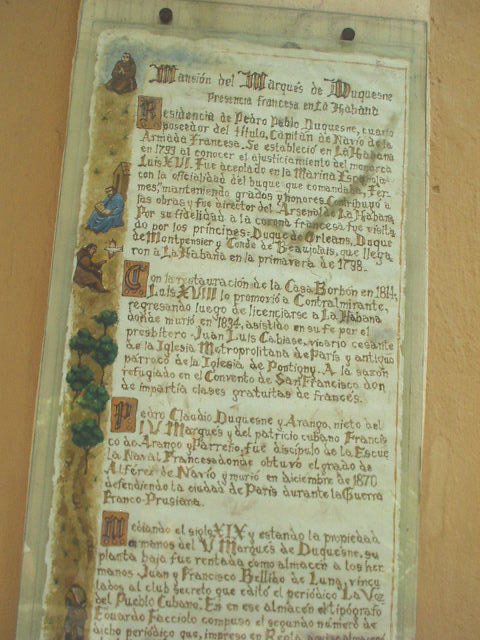 Mansión del Marqués de Duquesne
Presencia francesa en La Habana
Residencia de Pedro Pablo Duquesne, cuarto
poseedor del título, Capitán de Navío de la
Armada Francesa. Se estableció en La Habana
en 1793 al conocer el ajusticiamiento del monarca
Luis XVI. Fue aceptado en la Marina Española
con la oficialidad del buque que comandaba, Fer-
mes, manteniendo grados y honores. Contribuyó a
las obras y fue director del Arsenal de La Habana
Por su fidelidad a la corona francesa fue visita
do por los príncipes: Duque de Orleans, Duque
de Montpensier y Conde de Beaujolais, que llega
ron a La Habana en la primavera de 1798.
Con la restauración de la Casa Borbón en 1814,
Luis XVIII lo promovió a Contralmirante,
regresando luego de licenciarse a La Habana
donde murió en 1834, asistido en su fe por el
presbítero Juan Luis Cabiase, vicario cesante
de la Iglesia Metropolitana de París y antiguo
párroco de la Iglesia de Pontigny. A la sazón
refugiado en el Convento de San Francisco don
de impartía clases gratuitas de francés.
Pedro Claudio Duquesne y Arango, nieto del
IV Marqués y del patricio cubano Francis
co de Arango y Parreño, fue discípulo de la Escue
la Naval Francesa donde obtuvo el grado de
Alférez de Navío y murió en diciembre de 1870
defendiendo la ciudad de París durante la Guerra
Franco-Prusiana.
Mediando el siglo XIX y estando la propiedad
a manos del V Marqués de Duquesne, su
planta baja fue rentada como almacén a los her
manos Juan y Francisco Bellido de Luna, vincu
lados al club secreto que editó el periódico La Voz
del Pueblo Cubano. En ese almacén el tipógrafo
Eduardo Facciolo compuso el segundo número de
dicho periódico que, impreso en Regla